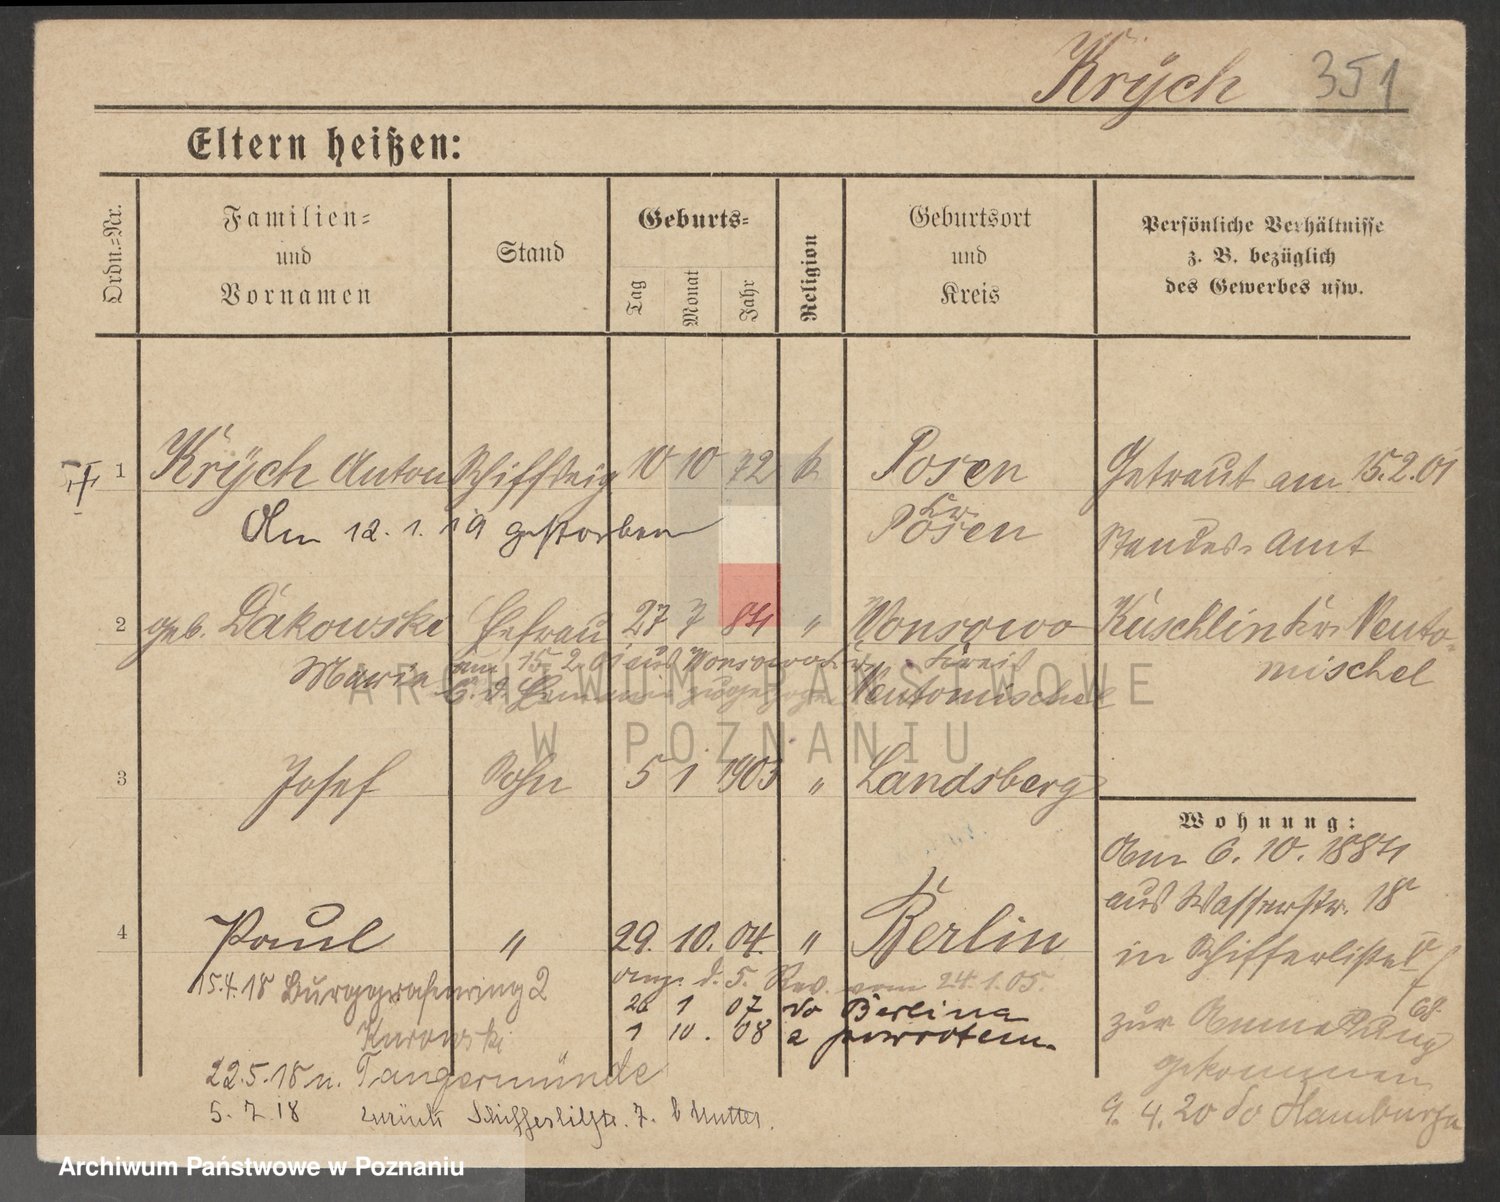 Krÿch 351
Eltern heißen:
Ordn.=Nr.
Familien=
und
Vornamen
Stand
Geburts=
Tag
Monat
Jahr
Religion
Geburtsort
und
Kreis
Persönliche Verhältnisse
z. B. bezüglich
des Gewerbes usw.
1 Krÿch Anton 10 10 72 k Posen Getraut am 15.2.01
Am 12. 1. 19 gestorben Kr. Posen Standes-Amt
2 geb. Bakowski Ehefrau 27 7 84 " Wonsowo Kuschlin Kr. Neuto-
mischel
Maria am 15.2.01 aus Wonsowo Kreis
zugezogen Neutomischel
3 Josef Sohn 5 1 1903 " Landsberg
Wohnung:
Am 6. 10. 1884
aus Wasserstr. 18
4 Paul " 29. 10. 04. " Berlin
in Schifferliste
15.4.18 Burggrafenring 2
ang. d. 5. Rev. vom 24.1.05.
26 1 07 do Berlina
Kurowski
1 10. 08 z powrotem
zur
gekommen
22.5.18 n. Tangermünde
5. 7. 18 zurück 7. b Mutter.
9. 4. 20 do Hamburga
ARCHIWUM PAŃSTWOWE
W POZNANIU
Archiwum Państwowe w Poznaniu